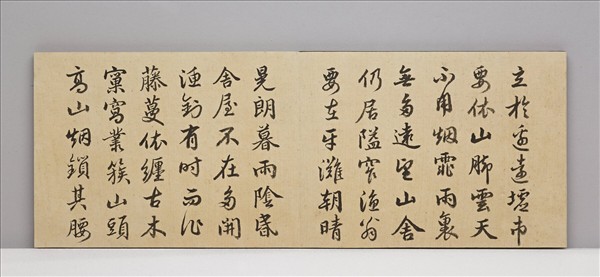 立於墟市
要依山腳雲天
不用烟霏雨裏
無多遠望山舍
仍居隘窄漁翁
要在平灘朝晴
晃朗暮雨陰昏
舍屋不在多開
漁釣有時而作
藤蔓依纏古木
窠窩叢簇山頭
高山烟鎖其腰